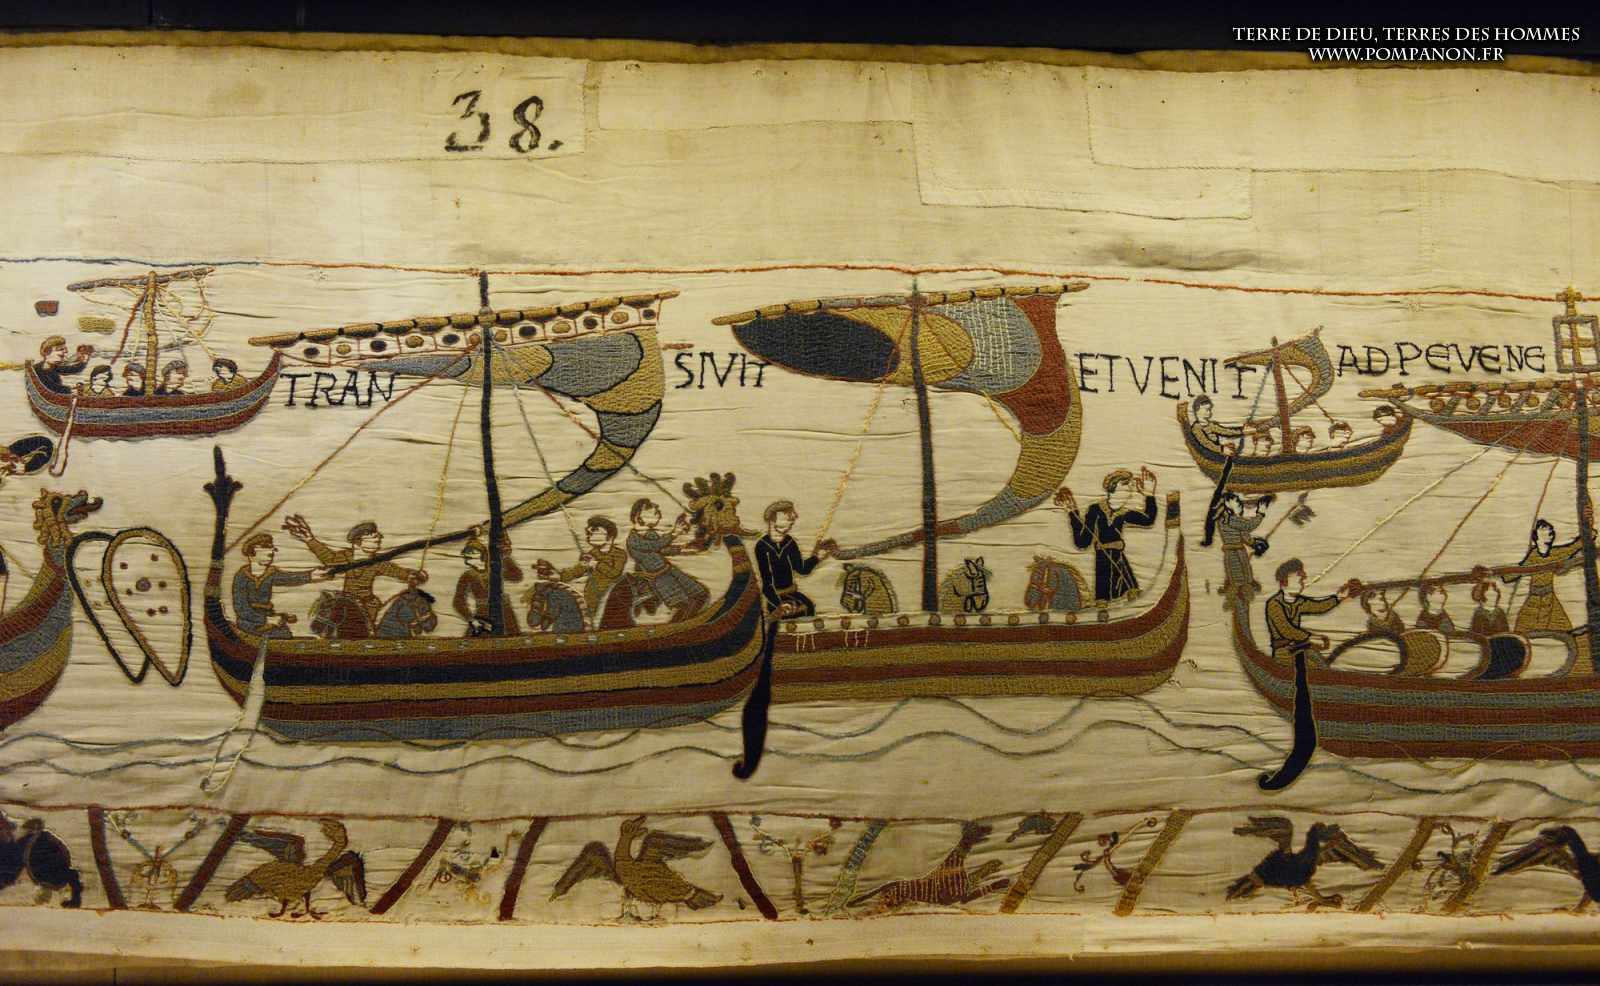 TERRE DE DIEU, TERRES DES HOMMES
WWW.POMPANON.FR
38.
TRAN SIVIT ET VENIT AD PEVENE